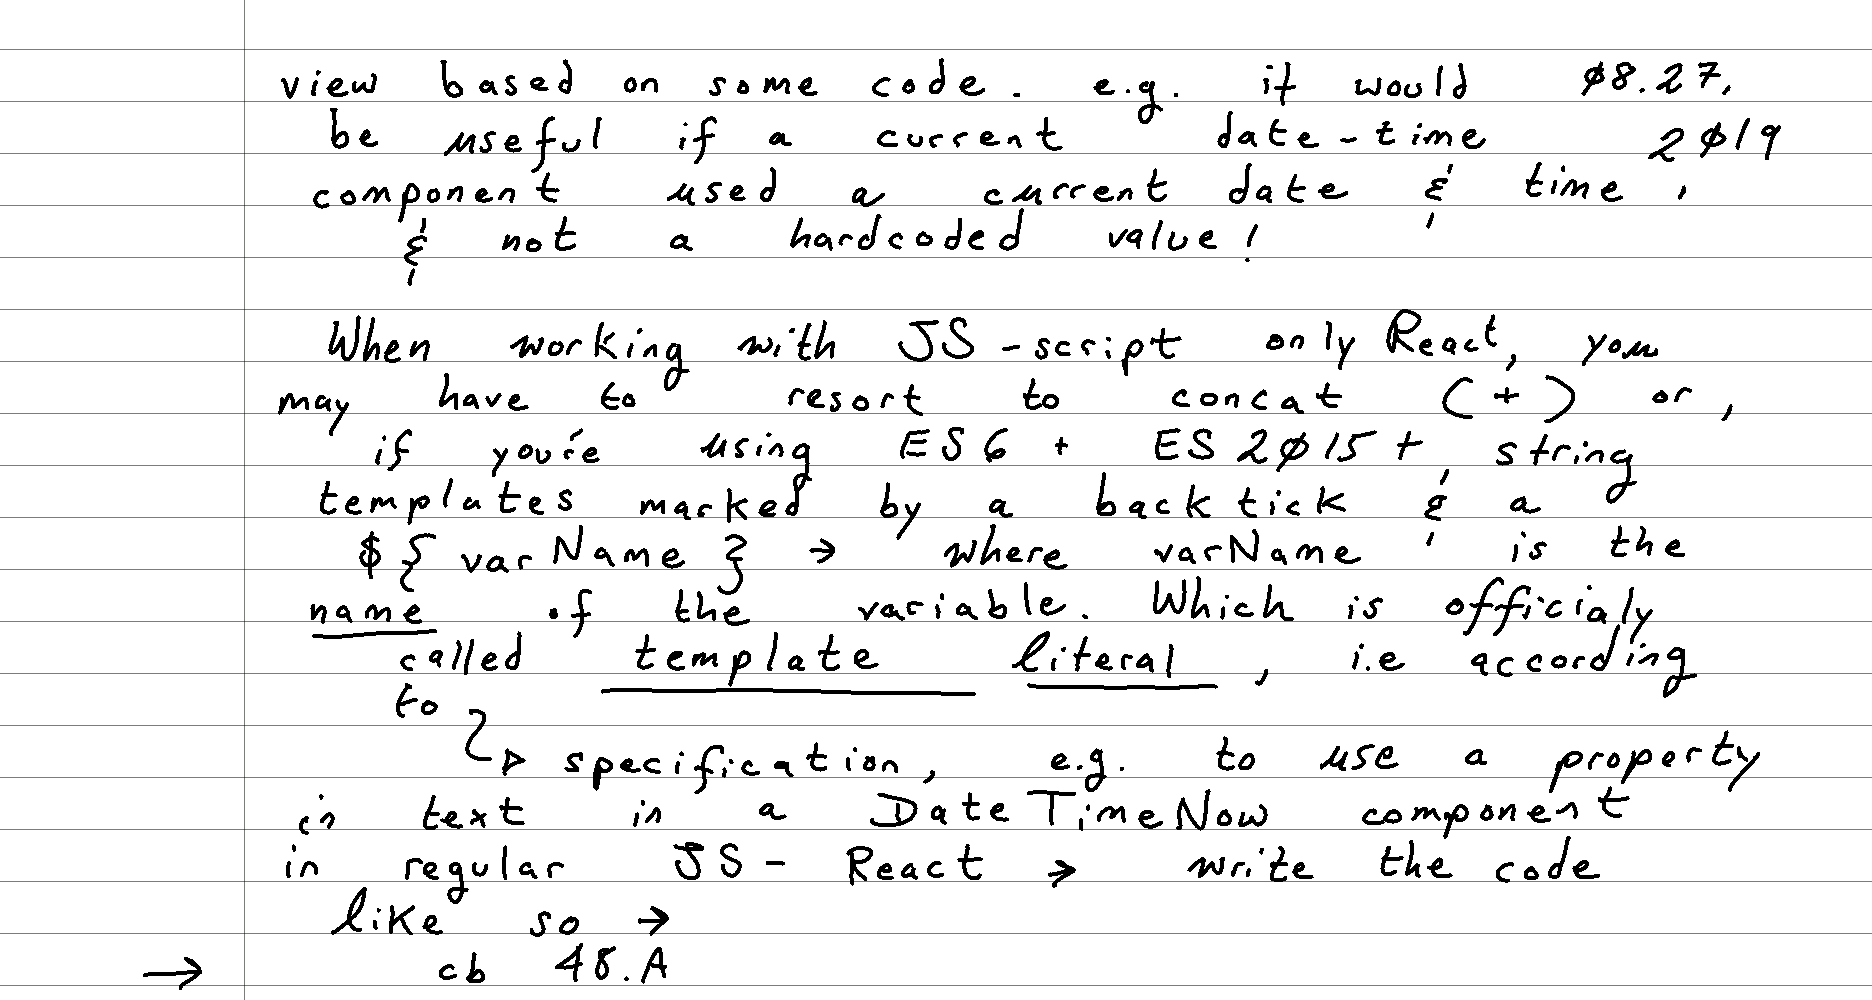 view based on some code. e.g. it would ø8.27,
be useful if a current date-time 2ø19
component used a current date & time,
& not a hardcoded value!
When working with JS-script only React, you
may have to resort to concat (+) or,
if you're using ES6 + ES2ø15+, string
templates marked by a back tick & a
${varName} → where varName is the
name of the variable. Which is officialy
called template literal, i.e according
to
specification, e.g. to use a property
in text in a DateTimeNow component
in regular JS- React → write the code
like so →
→ cb 48.A